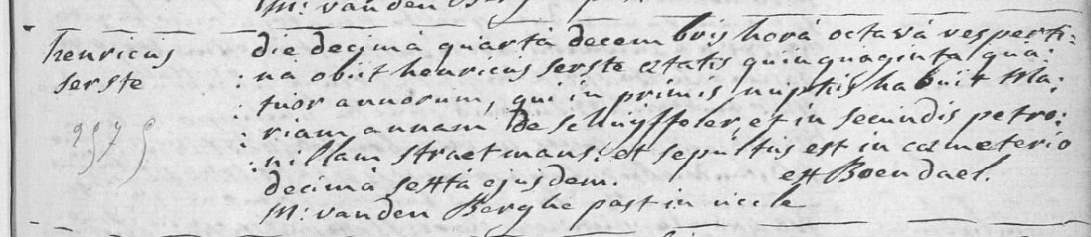 M: van den Berghe
henricus
serste
2575
die decimâ quarta decembris horâ octavâ vesperti:
na obiit henricus serste ætatis quinquaginta qua:
tuor annorum, qui in primis nuptiis habuit Ma:
riam annam De Schuÿffeler, et in secundis petro:
nillam straetmans: et sepultus est in cæmeterio
decimâ sextâ ejusdem. ex Boendael.
M: van den Berghe past in uccle